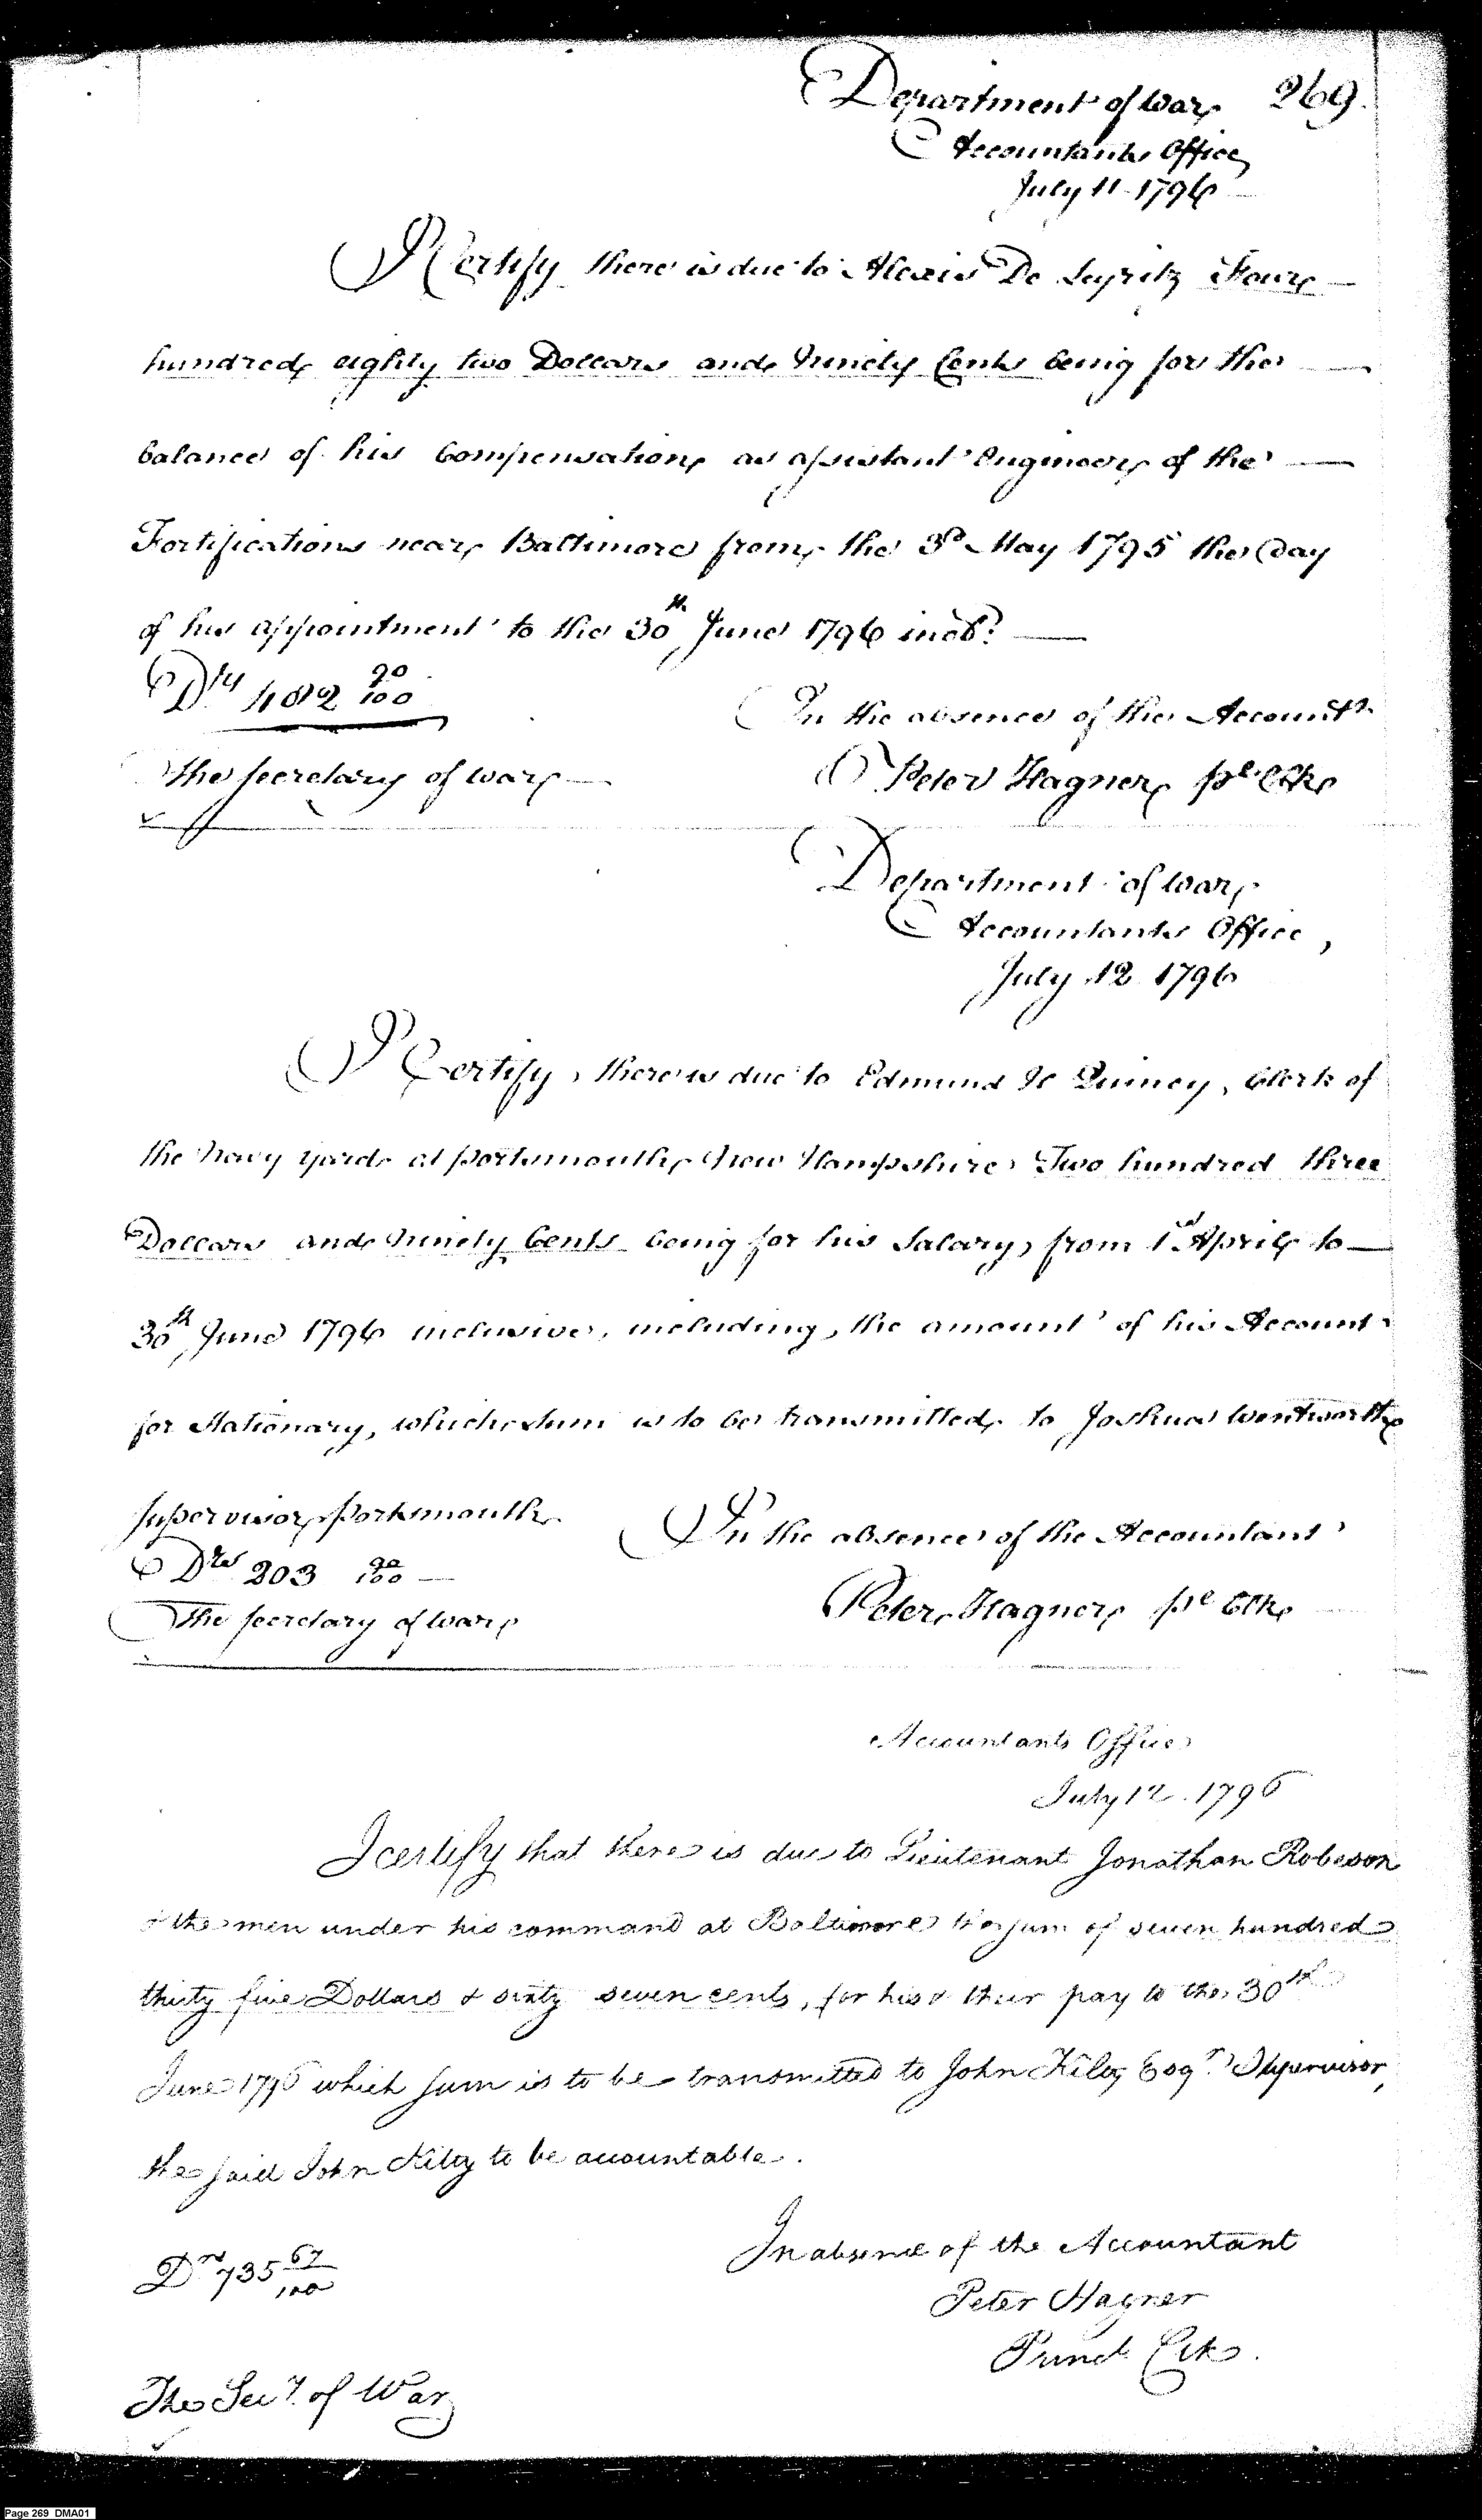 Department of War 269.
Accountants Office
July 11 1796
I Certify there is due to Alexis De Leyritz Four
hundred eighty two Dollars and Ninety Cents being for the
balance of his Compensation as assistant Engineer of the
Fortifications near Baltimore from the 3d May 1795 the Day
of his appointment to the 30th June 1796 incle.
Drs 482 90/100
In the absence of the Accountt.
The Secretary of War
Peter Hagner pl Clk
Department of War
Accountants Office,
July 12 1796
I Certify, there is due to Edmund Quincy, Clerk of
the Navy Yard at Portsmouth New Hampshire Two hundred three
Dollars and Ninety Cents being for his Salary, from 1st April to
30th June 1796 inclusive, including, the amount of his Account
for Stationary, which sum is to be transmitted to Joshua Wentworth
Supervisor Portsmouth
In the absence of the Accountant
Drs 203 90/100
Peter Hagner pl Clk
The Secretary of War
Accountants Office
July 12. 1796
I certify that there is due to Lieutenant Jonathan Robeson
& the men under his command at Baltimore the sum of seven hundred
thirty five Dollars & sixty seven cents, for his & their pay to the 30th
June 1796 which sum is to be transmitted to John Kilty Esqr. Supervisor,
the said John Kilty to be accountable.
In absence of the Accountant
Drs 735 67/100
Peter Hagner
Princl. Clk.
The Secy. of War
Page 269 DMA01